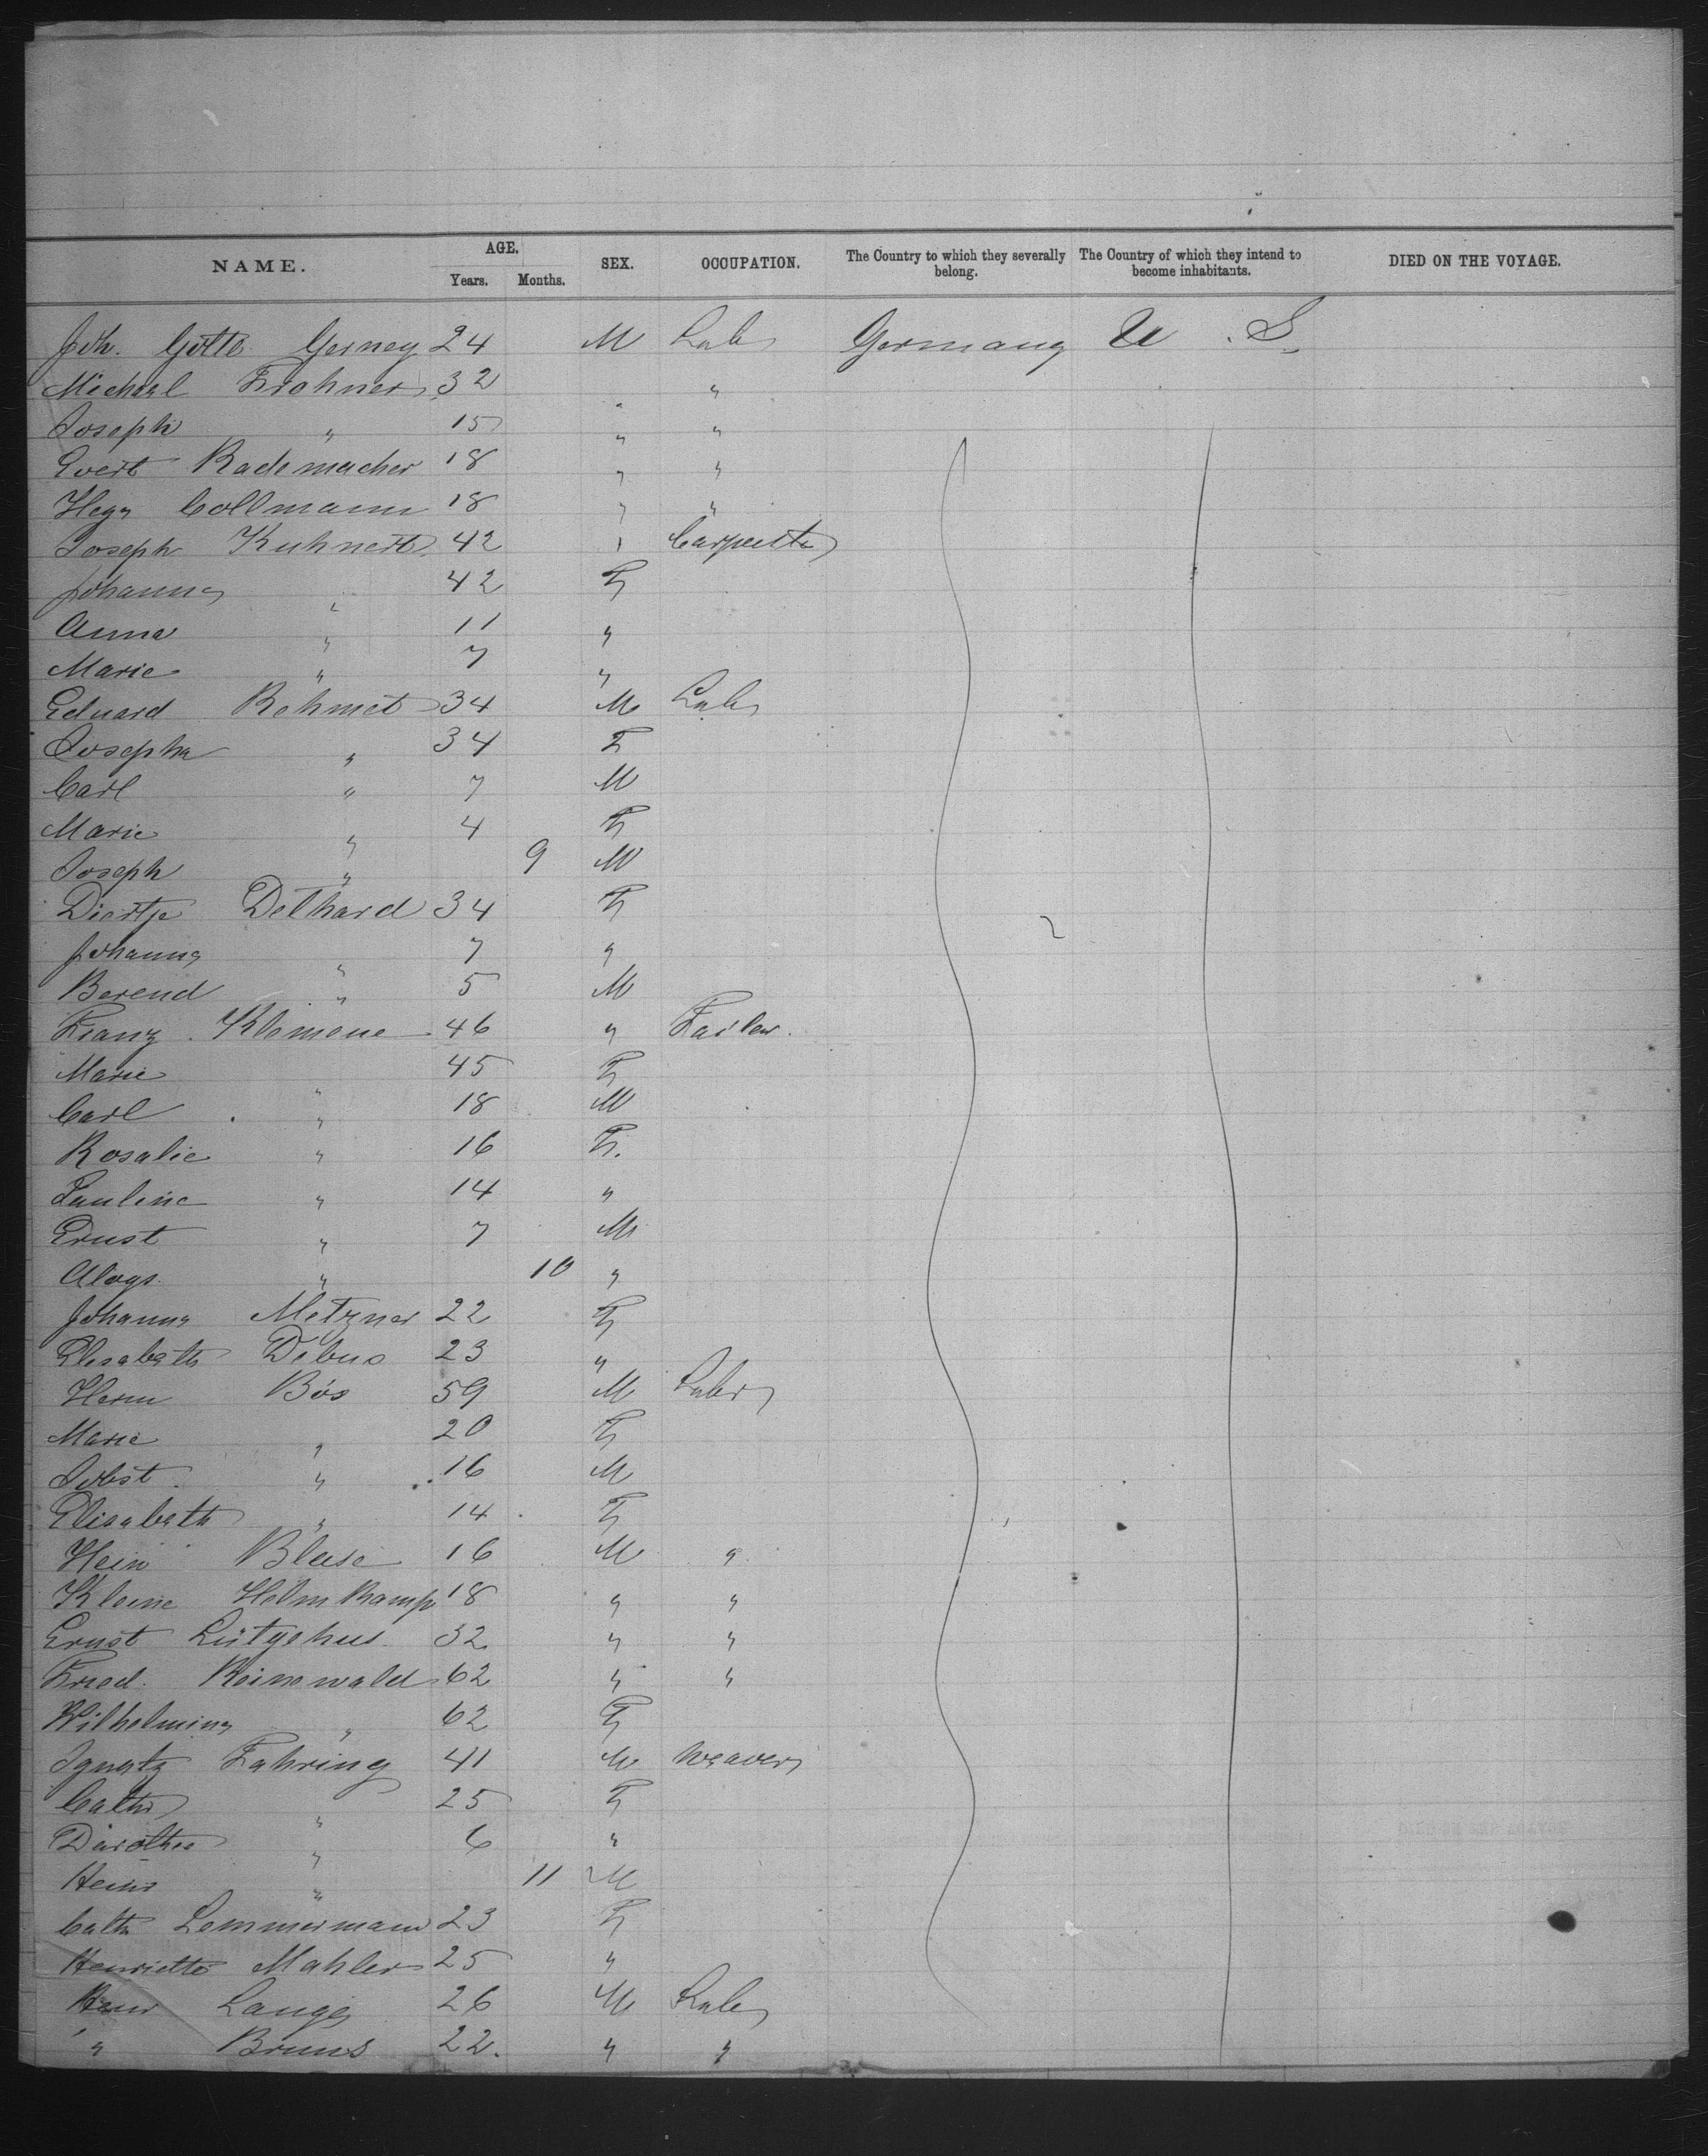 NAME. AGE. SEX. OCCUPATION. The Country to which they severally belong. The Country of which they intend to become inhabitants. DIED ON THE VOYAGE.
Years. Months.
Joh. Gottl. Gerney 24 M Lab Germany U. S.
Michael Frohner 32 " "
Joseph " 15 " "
Evert Rademacher 18 " "
Collmann 18 " "
Joseph Kuhnert 42 " Carpenter
Johanna " 42 F
Anna " 11 "
Marie " 7 "
Eduard Rehmet 34 M Lab
Josepha " 34 F
Carl " 7 M
Marie " 4 F
Joseph " 9 M
Diertje Delhard 34 F
Johanna " 7 "
Berend " 5 M
Franz Klemene 46 " Tailor.
Marie " 45 F
Carl " 18 M
Rosalie " 16 F.
Pauline " 14 "
Ernst " 7 M
Aloys. " 10 "
Johanna Metzner 22 F
Elisabeth Debus 23 "
Herm Bös 59 M Labr
Marie " 20 F
Jobst " 16 M
Elisabeth " 14 F
Hein Blase 16 M "
Kleine Helmkamp 18 " "
Ernst Lütgehus. 32 " "
Fried. Reinewald 62 " "
Wilhelmina " 62 F
Ignatz Fahring 41 M Weaver
Cath " 25 F
Dorothea " 6 "
Heinr " 11 M
Cath Lemmermann 23 F
Henriette Mahler 25 "
Heinr Lange 26 M Lab
" Bruns 22. " "